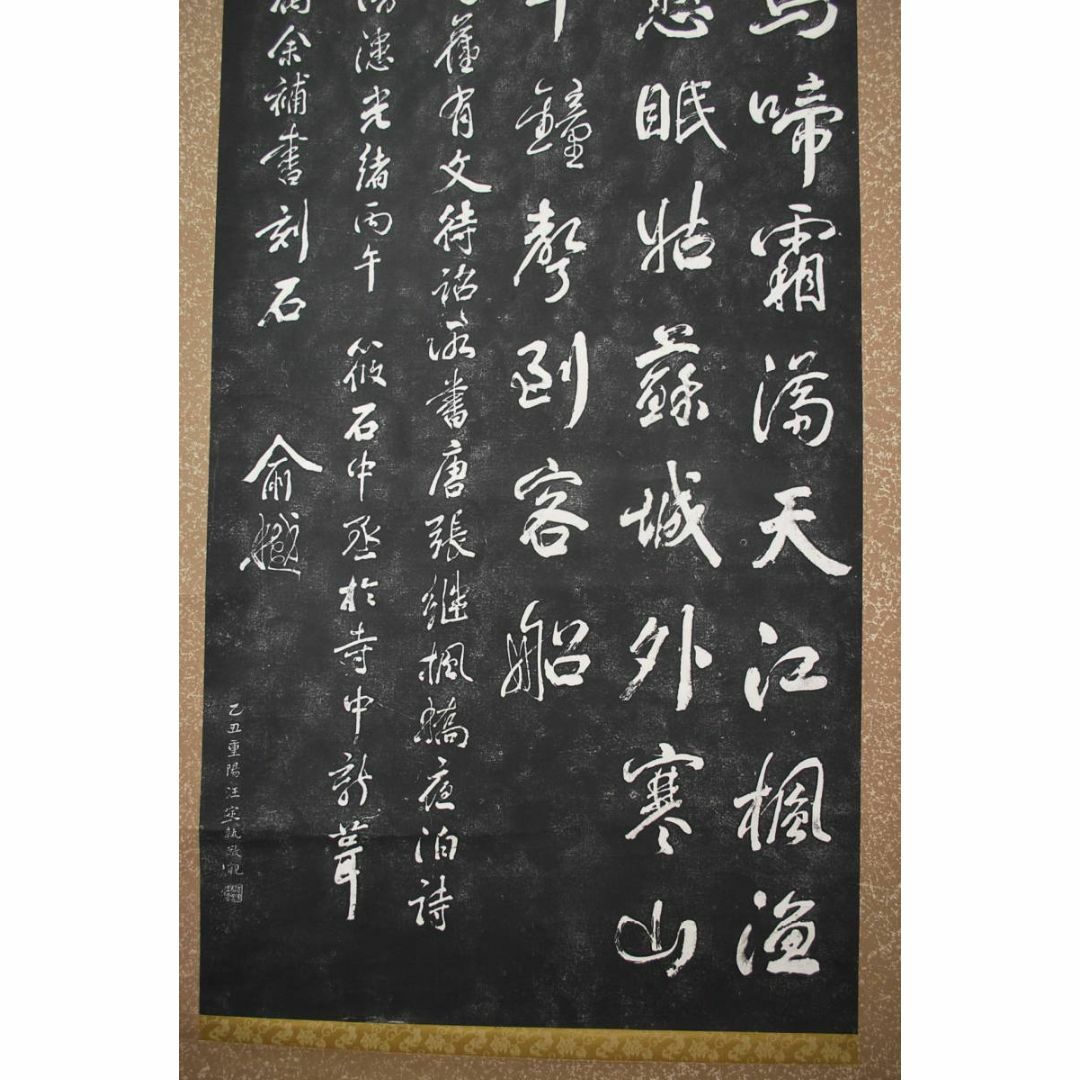 烏啼霜滿天江楓漁
愁眠姑蘇城外寒山
半鐘聲到客船
舊有文待詔所書唐張繼楓橋夜泊詩
漫漶光緒丙午 筱石中丞於寺中新葺
屬余補書刻石
俞樾
乙丑重陽汪定執敬觀